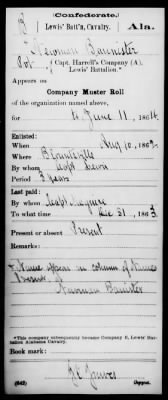 (Confederate.)
B Lewis' Batt'n, Cavalry. Ala.
Newman Banister
Pvt. { Capt. Harrell's Company (A),
Lewis' Battalion.*
Appears on
Company Muster Roll
of the organization named above,
for to June 11, 1864.
Enlisted:
When Aug 10, 1862
Where Blountsville
By whom Capt Lewis
Period 3 years
Last paid:
By whom Capt Maguire
To what time Dec 31, 1863
Present or absent Present
Remarks:
Name appears in column of Names
Present
Newman Banister
*This company subsequently became Company E, Lewis' Bat-
talion Alabama Cavalry.
Book mark:
(642) Copyist.